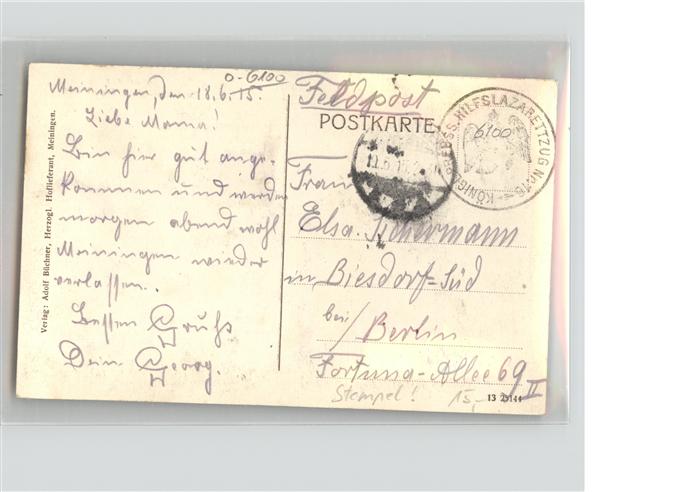 0-6100
Meiningen, den 18.6.15.
Liebe Mama!
Bin hier gut ange-
kommen und werde
morgen abend wohl
Meiningen wieder
verlassen.
Besten Gruß
Dein Georg.
Verlag: Adolf Büchner, Herzogl. Hoflieferant, Meiningen.
Feldpost
POSTKARTE
HILFSLAZARETTZUG No
6100
Frau
Elsa
in Biesdorf=Süd
bei/Berlin
Fortuna-Allee 69 II
Stempel! 15,-
13 25144